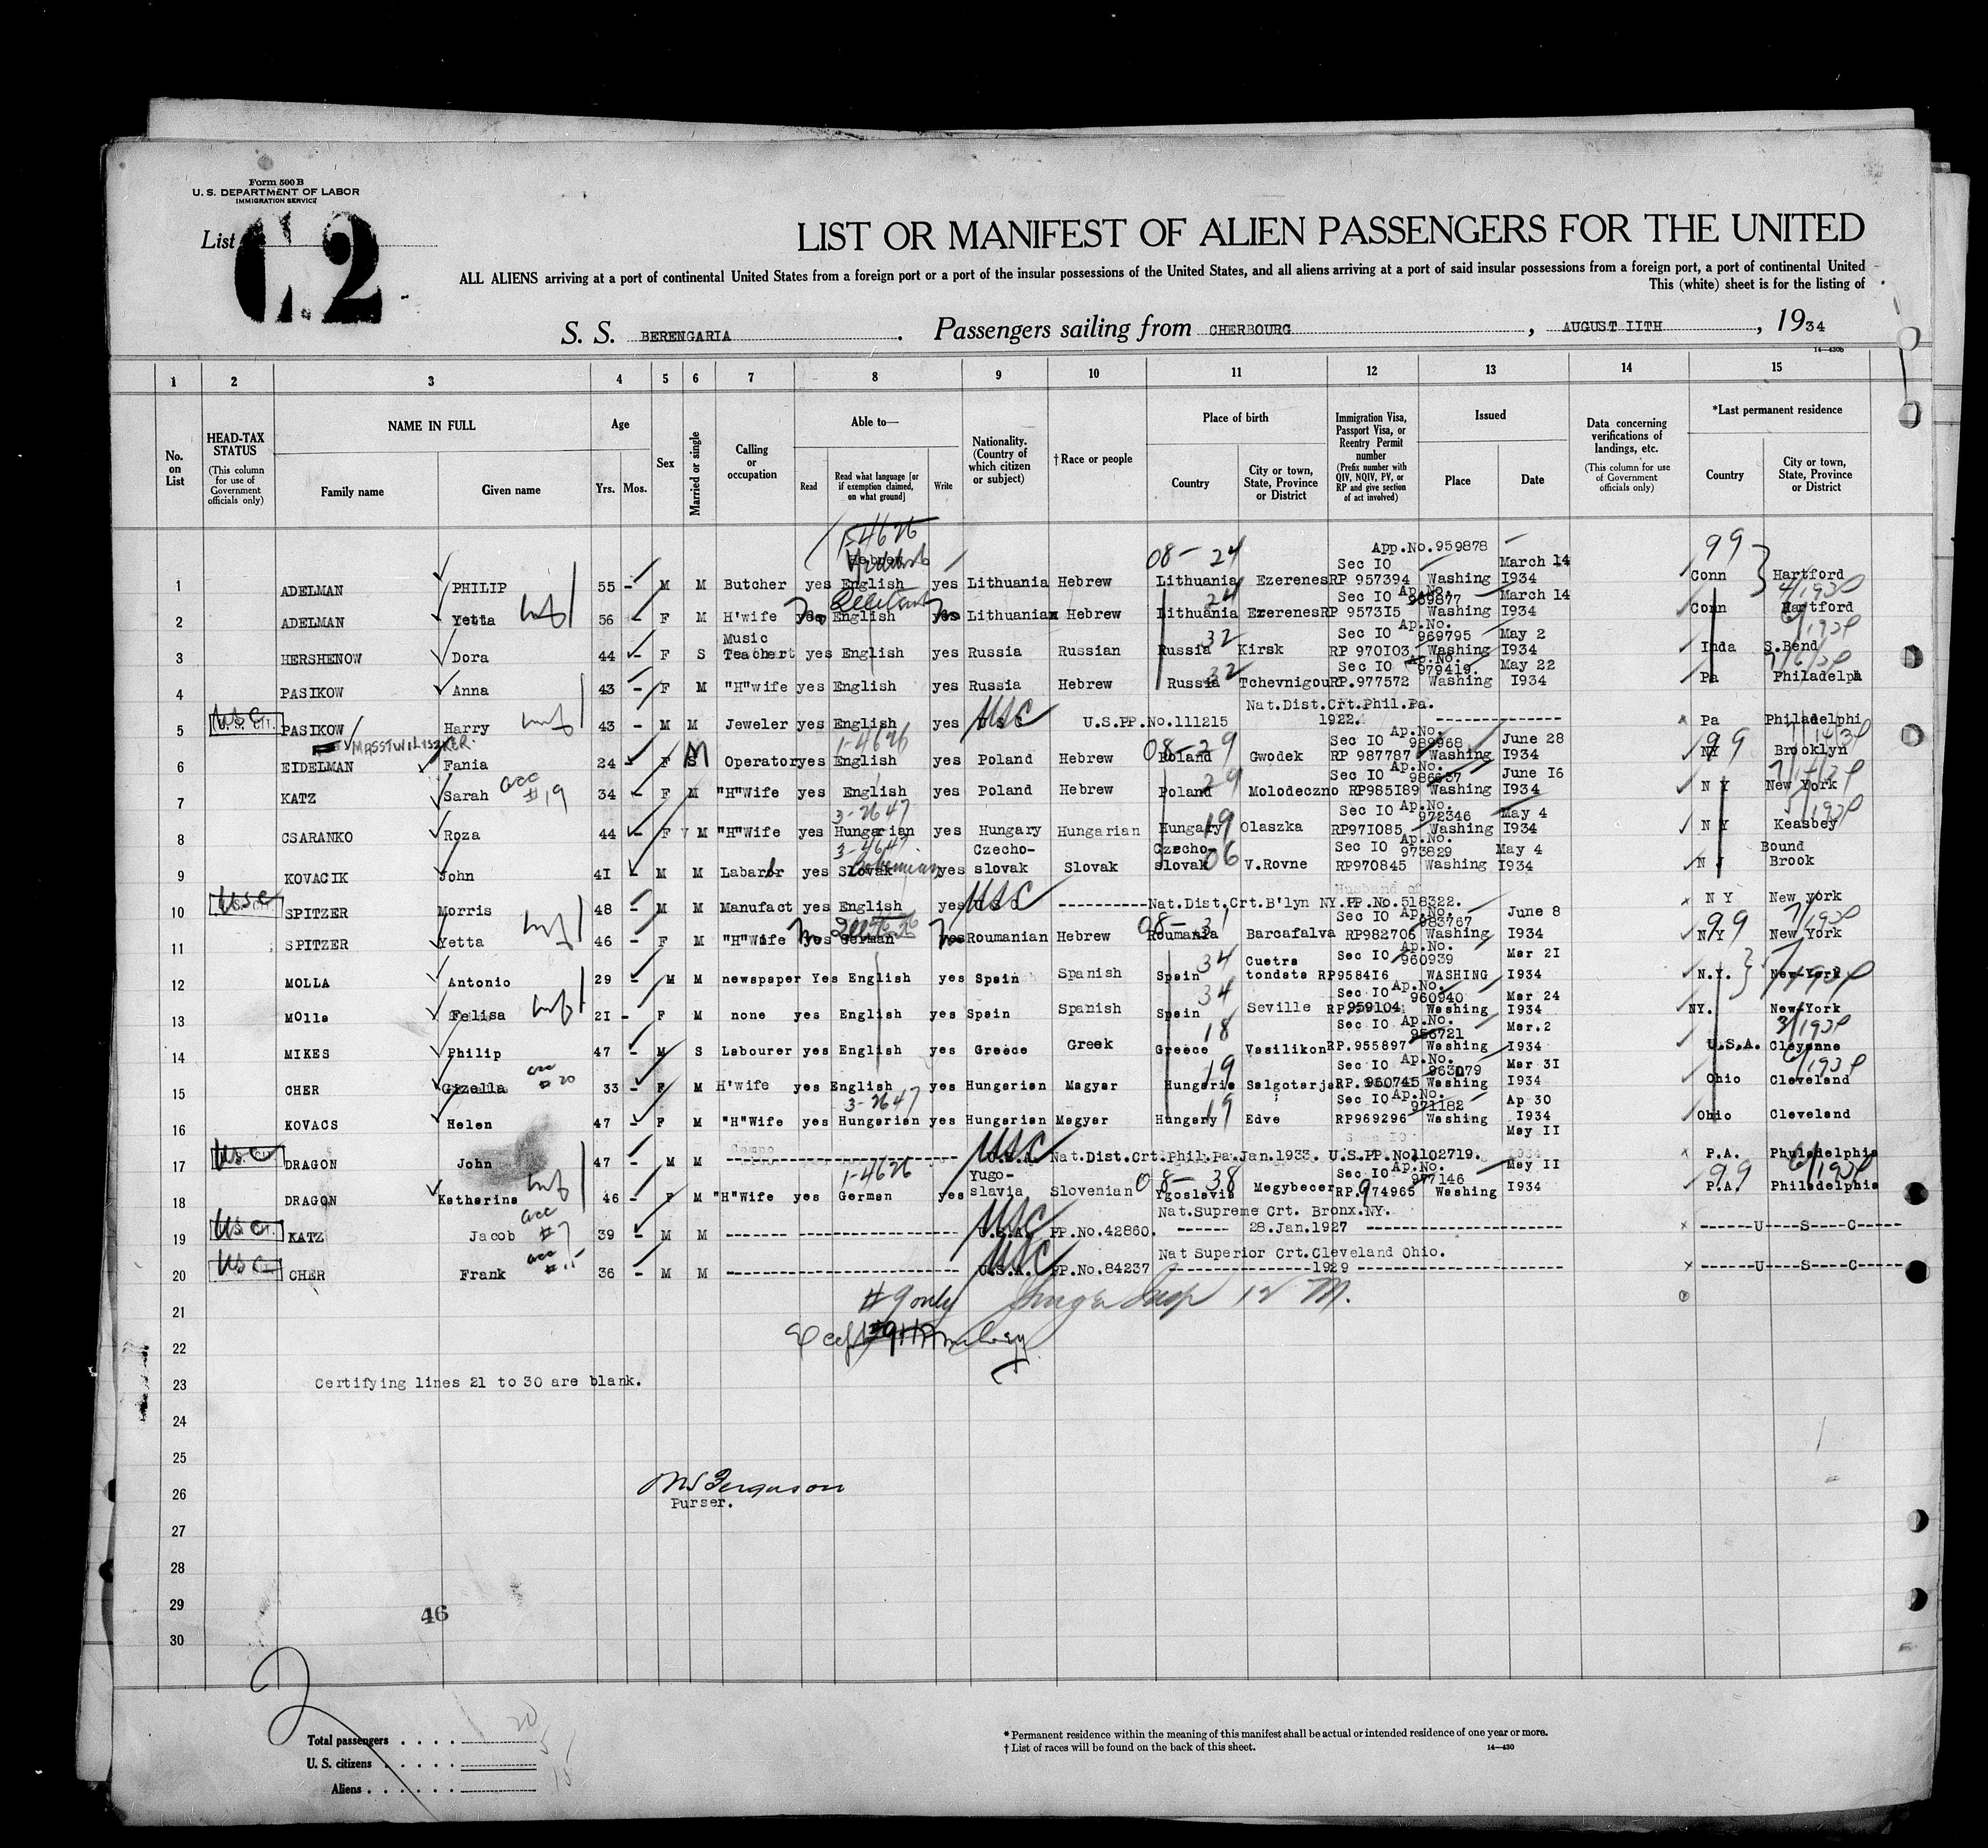 Form 500 B
U. S. DEPARTMENT OF LABOR
IMMIGRATION SERVICE
List C.2
LIST OR MANIFEST OF ALIEN PASSENGERS FOR THE UNITED
ALL ALIENS arriving at a port of continental United States from a foreign port or a port of the insular possessions of the United States, and all aliens arriving at a port of said insular possessions from a foreign port, a port of continental United
This (white) sheet is for the listing of
S. S. BERENGARIA. Passengers sailing from CHERBOURG, AUGUST IITH, 1934
1 2 3 4 5 6 7 8 9 10 11 12 13 14 15
No. on List
HEAD-TAX STATUS (This column for use of Government officials only)
NAME IN FULL Family name Given name
Age Yrs. Mos.
Sex
Married or single
Calling or occupation
Able to— Read Read what language [or if exemption claimed, on what ground] Write
Nationality. (Country of which citizen or subject)
†Race or people
Place of birth Country City or town, State, Province or District
Immigration Visa, Passport Visa, or Reentry Permit number (Prefix number with QIV, NQIV, PV, or RP and give section of act involved)
Issued Place Date
Data concerning verifications of landings, etc. (This column for use of Government officials only)
*Last permanent residence Country City or town, State, Province or District
1-4626 Hebrew 08-24 App.No.959878 99
1 ADELMAN PHILIP 55 - M M Butcher yes English yes Lithuania Hebrew Lithuania Ezerenes Sec IO RP 957394 Washing March 14 I934 Conn Hartford
2 ADELMAN Yetta 56 - F M H'wife English Lithuanian Hebrew 24 Lithuania Ezerenes Sec IO Ap.No. 959877 RP 9573I5 Washing March 14 I934 Conn Hartford
3 HERSHENOW Dora 44 - F S Music Teacher yes English yes Russia Russian 32 Russia Kirsk Sec IO Ap.No. 969795 RP 970I03 Washing May 2 I934 Inda S.Bend
4 PASIKOW Anna 43 - F M "H"wife yes English yes Russia Hebrew 32 Russia Tchevnigou Sec IO Ap.No. 979419. RP.977572 Washing May 22 I934 Pa Philadelph
5 USC U.S. CIT. PASIKOW Harry 43 - M M Jeweler yes English yes USC U.S.PP.No.111215 Nat.Dist.Crt.Phil.Pa. 1922. --------------- x Pa Philadelphi
6 EIDELMAN Fania 24 - F M Operator yes 1-4626 English yes Poland Hebrew 08-29 Poland Gwodek Sec IO Ap.No. 989968 RP 987787 Washing June 28 I934 99 NY Brooklyn
7 KATZ Sarah acc #19 34 - F M "H"Wife yes English yes Poland Hebrew 29 Poland Molodeczno Sec IO Ap.No. RP985I89 Washing June I6 I934 N Y New York
8 CSARANKO Roza 44 - F M "H"Wife yes 3-2647 Hungarian yes Hungary Hungarian 19 Hungary Olaszka Sec IO Ap.No. 972346 RP97I085 Washing May 4 I934 N Y Keasbey
9 KOVACIK John 4I M M Labaror yes 3-4647 Slovak Bohemian yes Czecho-slovak Slovak Czecho-slovak 06 V.Rovne Sec IO Ap.No. 973829 RP970845 Washing May 4 I934 N J Bound Brook
10 USC SPITZER Morris 48 - M M Manufact yes English yes USC ---------- Nat.Dist.Crt.B'lyn NY.PP.No.518322. Husband of x N Y New york
11 SPITZER Yetta 46 - F M "H"Wife German Roumanian Hebrew 08-31 Roumania Barcafalva Sec IO Ap.No. 983767 RP982706 Washing June 8 I934 99 N Y New York
12 MOLLA Antonio 29 - M M newspaper Yes English yes Spain Spanish 34 Spain Cuetra tondata Sec IO Ap.No. 960939 RP9584I6 WASHING Mar 2I I934 N.Y. New-York
13 Molla Felisa 2I - F M none yes English yes Spain Spanish 34 Spain Seville Sec IO Ap.No. 960940 RP.959104 Washing Mar 24 I934 NY. New-York
14 MIKES Philip 47 - M S Labourer yes English yes Greece Greek 18 Greece Vasilikon Sec IO Ap.No. 956721 RP.955897 Washing Mar.2 I934 U.S.A. Cleyenne
15 CHER Gizella acc #20 33 - F M H'wife yes English yes Hungarian Magyar 19 Hungaria Salgotarja Sec IO Ap.No. 963079 RP. 960745 Washing Mar 3I I934 Ohio Cleveland
16 KOVACS Helen 47 - F M "H"Wife yes 3-2647 Hungarian yes Hungarian Magyar 19 Hungary Edve Sec IO Ap.No. 971182 RP969296 Washing Ap 30 I934 Ohio Cleveland
17 USC DRAGON John 47 - M M -------------------- USC Nat.Dist.Crt.Phil.Pa.Jan.1933. U.S.PP.No1102719. May II x P.A. Philadelphia
18 DRAGON Katharina 46 - F M "H"Wife yes 1-4626 German yes Yugo-slavia Slovenian 08-38 Ygoslavia Megybecer Sec IO Ap.No. 977146 RP.974965 Washing May II I934 99 P.A. Philadelphia
19 USC U.S. CIT. KATZ Jacob acc #7 39 - M M -------------------- USC U.S.A. PP.No.42860. Nat.Supreme Crt. Bronx.NY. ------ 28.Jan.1927 -------------------- x ------U----S----C-----
20 USC CHER Frank acc #15 36 - M M -------------------- USC U.S.A. PP.No.84237 Nat Superior Crt.Cleveland Ohio. ---------------1929 -------------------- x ------U----S----C-----
21 #9 only
22
23 Certifying lines 21 to 30 are blank.
24
25
26 Ferguson
Purser.
27
28
29 46
30
Total passengers . . . . 20
U. S. citizens . . . . . 5
Aliens . . . . . . 15
* Permanent residence within the meaning of this manifest shall be actual or intended residence of one year or more.
† List of races will be found on the back of this sheet. 14—430